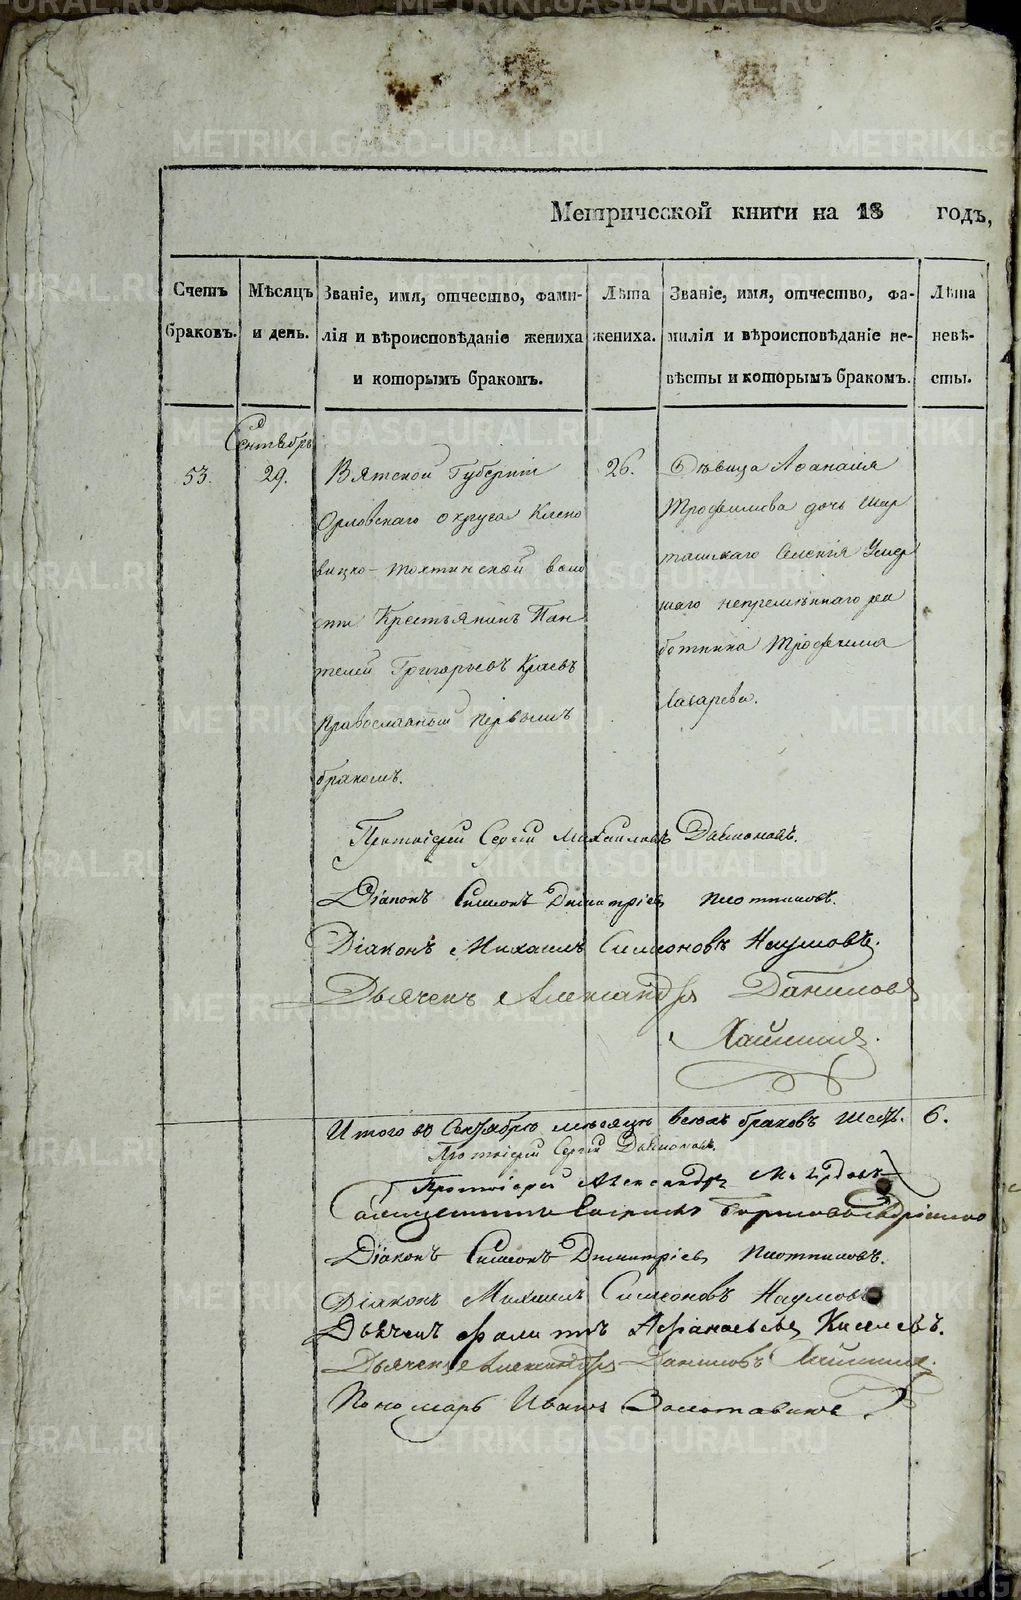 METRIKI.GASO-URAL.RU
Метрической книги на 18 годъ,
Счетъ браковъ.
Мѣсяцъ и день.
Званіе, имя, отчество, фами-
лія и вѣроисповѣданіе жениха
и которымъ бракомъ.
Лѣта жениха.
Званіе, имя, отчество, фа-
милія и вѣроисповѣданіе не-
вѣсты и которымъ бракомъ.
Лѣта невѣ-
сты.
Сентябрь
53.
29.
Вятской Губерніи
Орловскаго округа Клено
вицко-тохтинской воло
сти Крестьянинъ Пан
телей Григорьевъ Краевъ
Православный первымъ
бракомъ.
26.
Дѣвица Аѳанасія
Трофимова дочь Шар
ташскаго Селенія Умер
шаго непремѣннаго ра
ботника Трофима
Лазарева.
Протоіерей Сергій Михаиловъ
Діаконъ Симеонъ Димитріевъ Плотниковъ.
Діаконъ Михаилъ Симеоновъ Наумовъ.
Дьячекъ Александръ Данилов
Итого въ Сентябрѣ мѣсяцѣ всехъ браковъ шесть. 6.
Протоіерей Сергій
Протоіерей Александръ
Священникъ
Діаконъ Симеонъ Димитріевъ Плотниковъ.
Діаконъ Михаилъ Симеоновъ Наумовъ
Дьячекъ Аѳанасьевъ Киселевъ.
Дьячекъ Александръ Даниловъ
Пономарь Иванъ